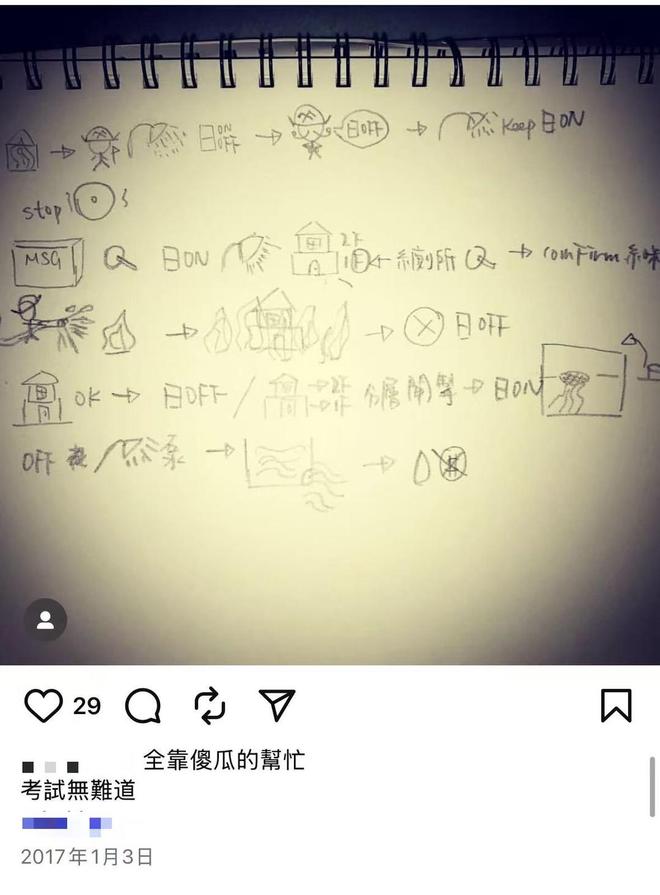 ON
OFF
日OFF
Keep 日ON
stop
MSG
日ON
2F
1F
廁所
日OFF
OK
日OFF
/
2F
1F
分層開掣
日ON
OFF
泵
29
全靠傻瓜的幫忙
考試無難道
2017年1月3日